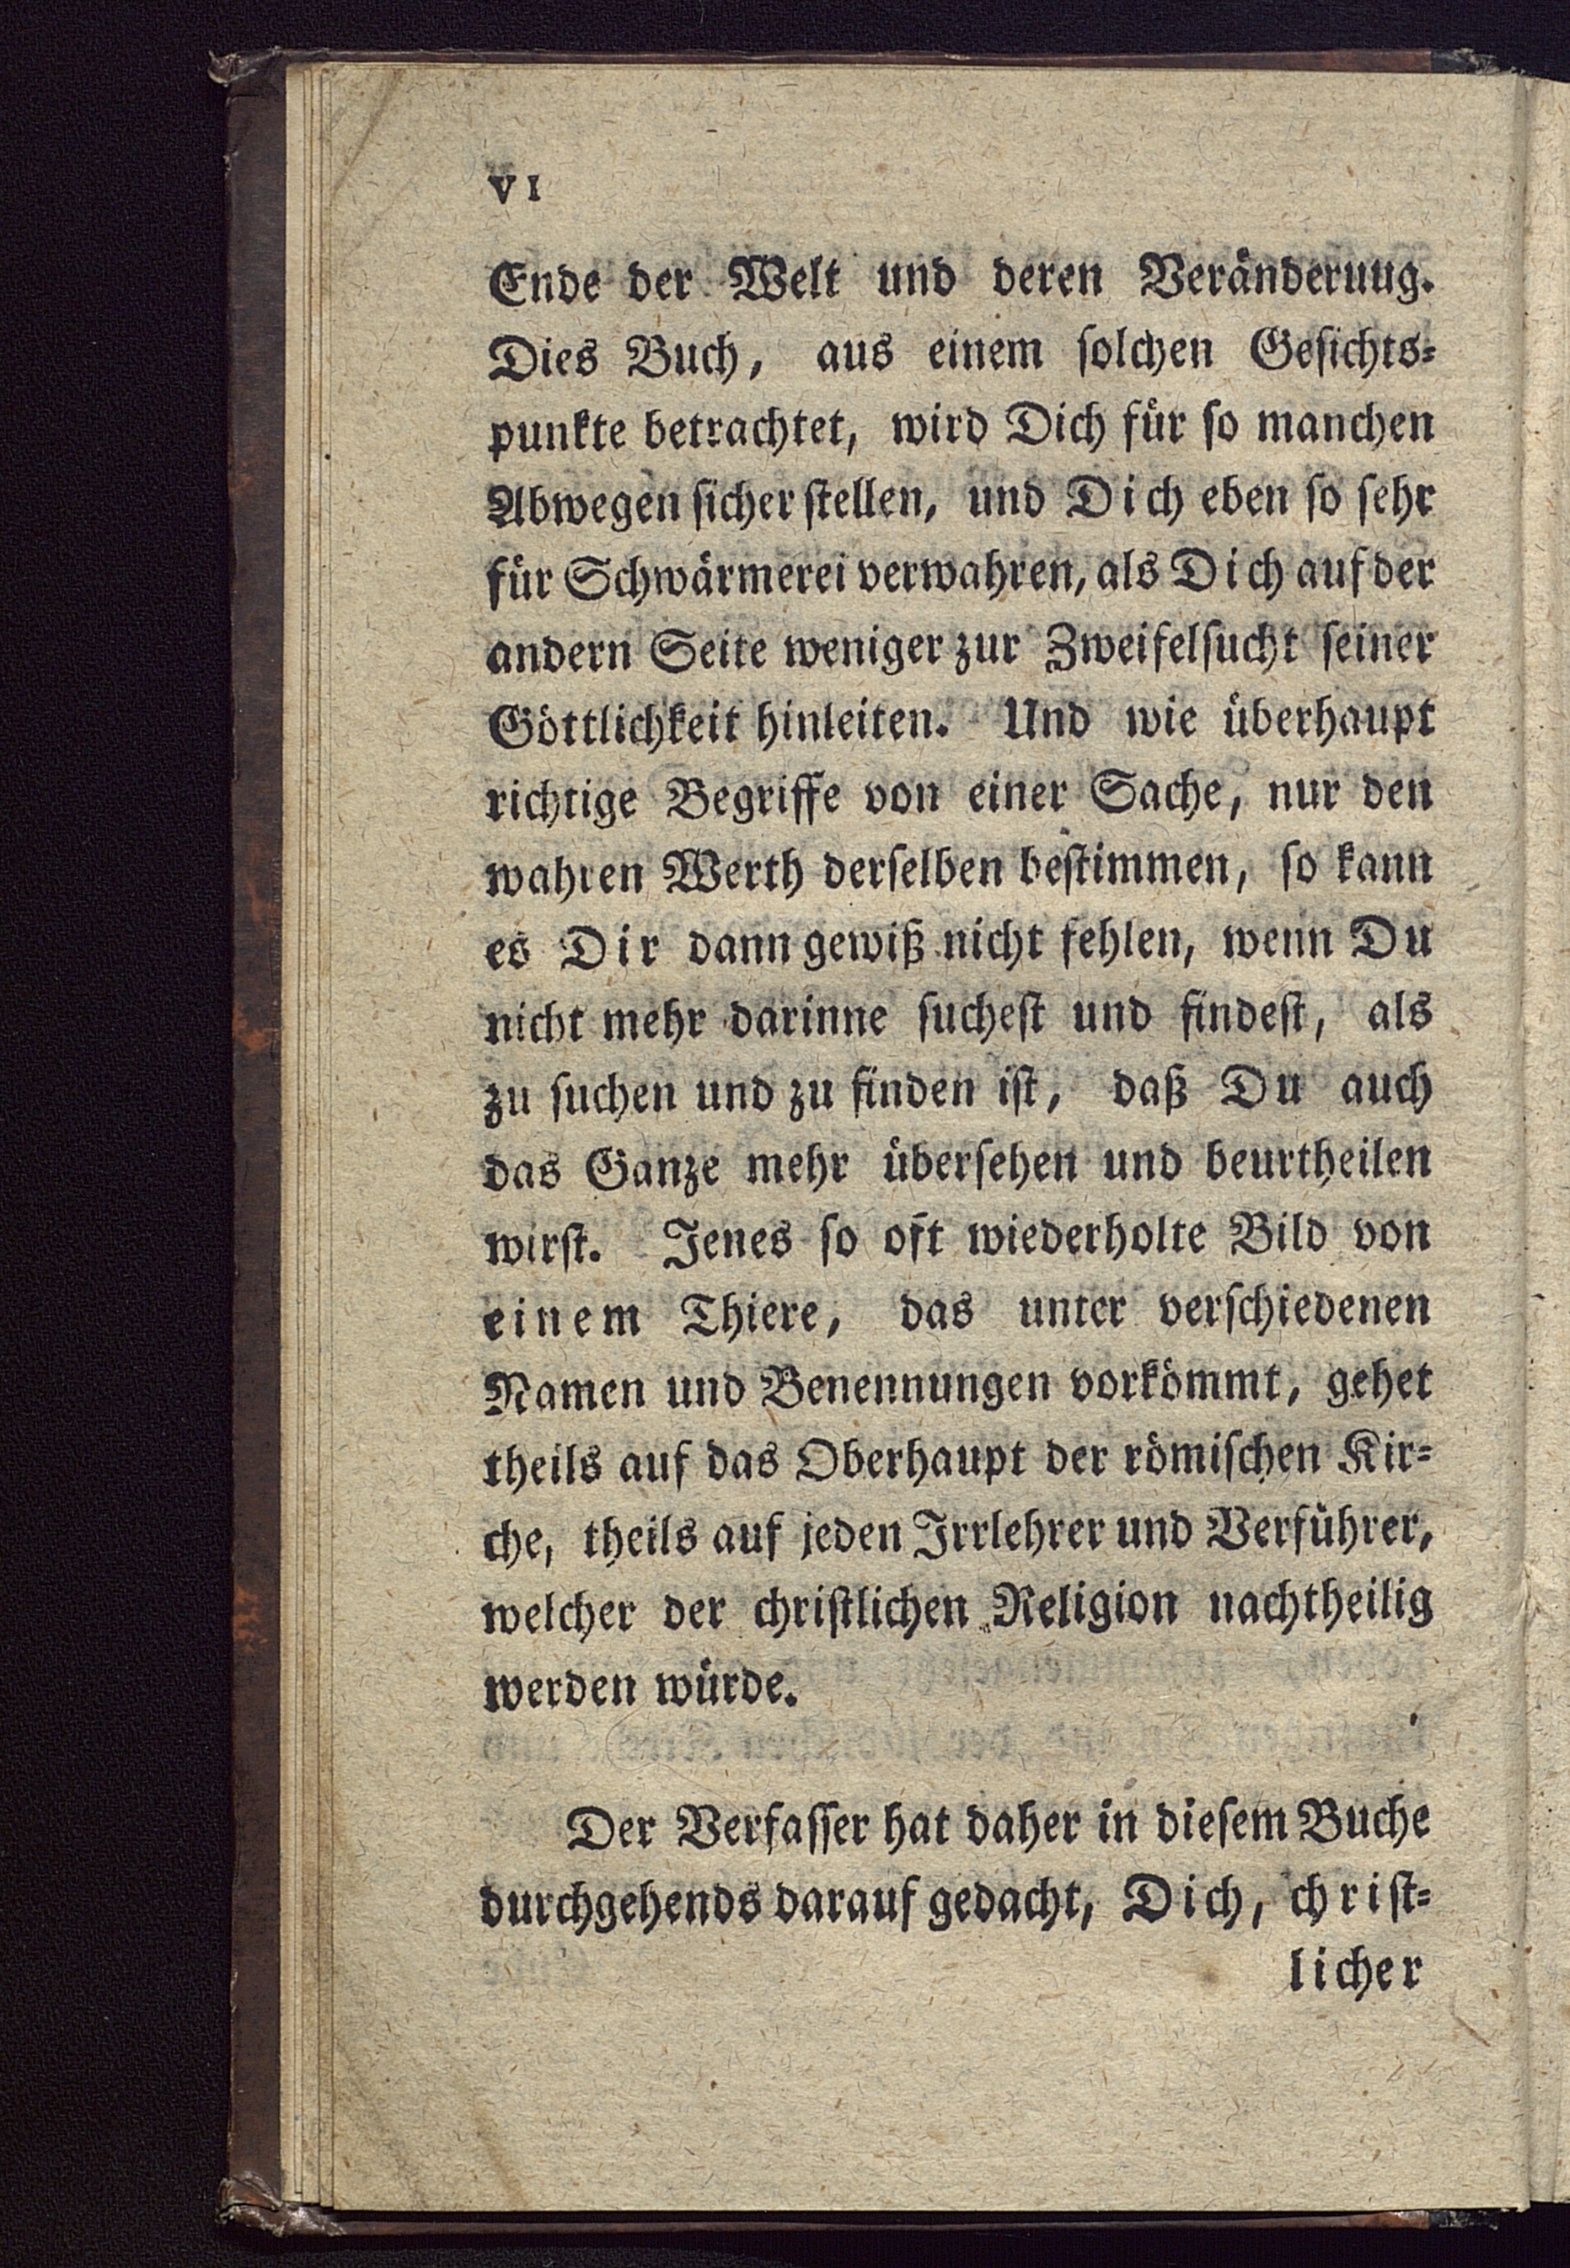 VI
Ende der Welt und deren Veränderuug.
Dies Buch, aus einem ſolchen Geſichts=
punkte betrachtet, wird Dich für ſo manchen
Abwegen ſicher ſtellen, und Dich eben ſo ſehr
für Schwärmerei verwahren, als Dich auf der
andern Seite weniger zur Zweifelſucht ſeiner
Göttlichkeit hinleiten. Und wie überhaupt
richtige Begriffe von einer Sache, nur den
wahren Werth derſelben beſtimmen, ſo kann
es Dir dann gewiß nicht fehlen, wenn Du
nicht mehr darinne ſucheſt und findeſt, als
zu ſuchen und zu finden iſt, daß Du auch
das Ganze mehr überſehen und beurtheilen
wirſt. Jenes ſo oft wiederholte Bild von
einem Thiere, das unter verſchiedenen
Namen und Benennungen vorkömmt, gehet
theils auf das Oberhaupt der römiſchen Kir=
che, theils auf jeden Irrlehrer und Verführer,
welcher der chriſtlichen Religion nachtheilig
werden würde.
Der Verfaſſer hat daher in dieſem Buche
durchgehends darauf gedacht, Dich, chriſt=
licher